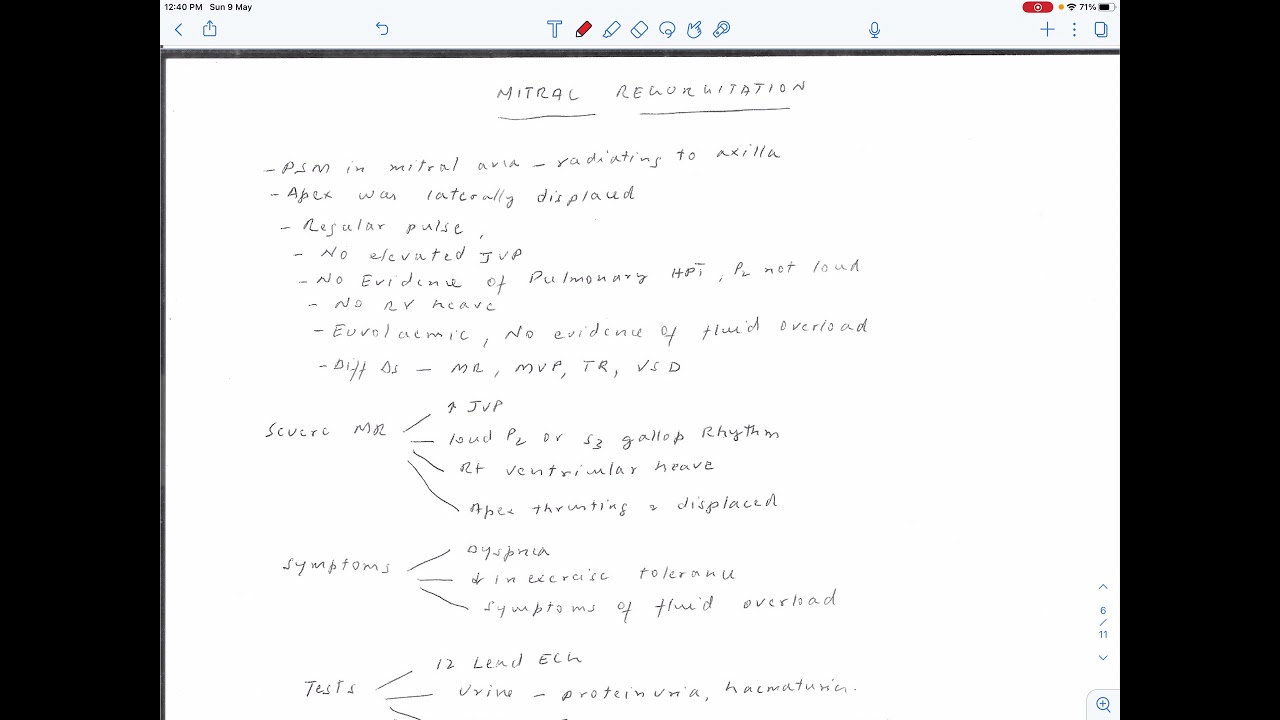 12:40 PM Sun 9 May
71%
MITRAL REGURGITATION
- PSM in mitral area - radiating to axilla
- Apex was laterally displaced
- Regular pulse,
- No elevated JVP
- No Evidence of Pulmonary HPT, P2 not loud
- No RV heave
- Euvolaemic, No evidence of fluid overload
- Diff Ds - MR, MVP, TR, VSD
Severe MR
↑ JVP
loud P2 or S3 gallop Rhythm
Rt ventricular heave
Apex thrusting & displaced
Symptoms
Dyspnea
↓ in exercise tolerance
Symptoms of fluid overload
6
/
11
Tests
12 Lead ECG
Urine - proteinuria, haematuria.